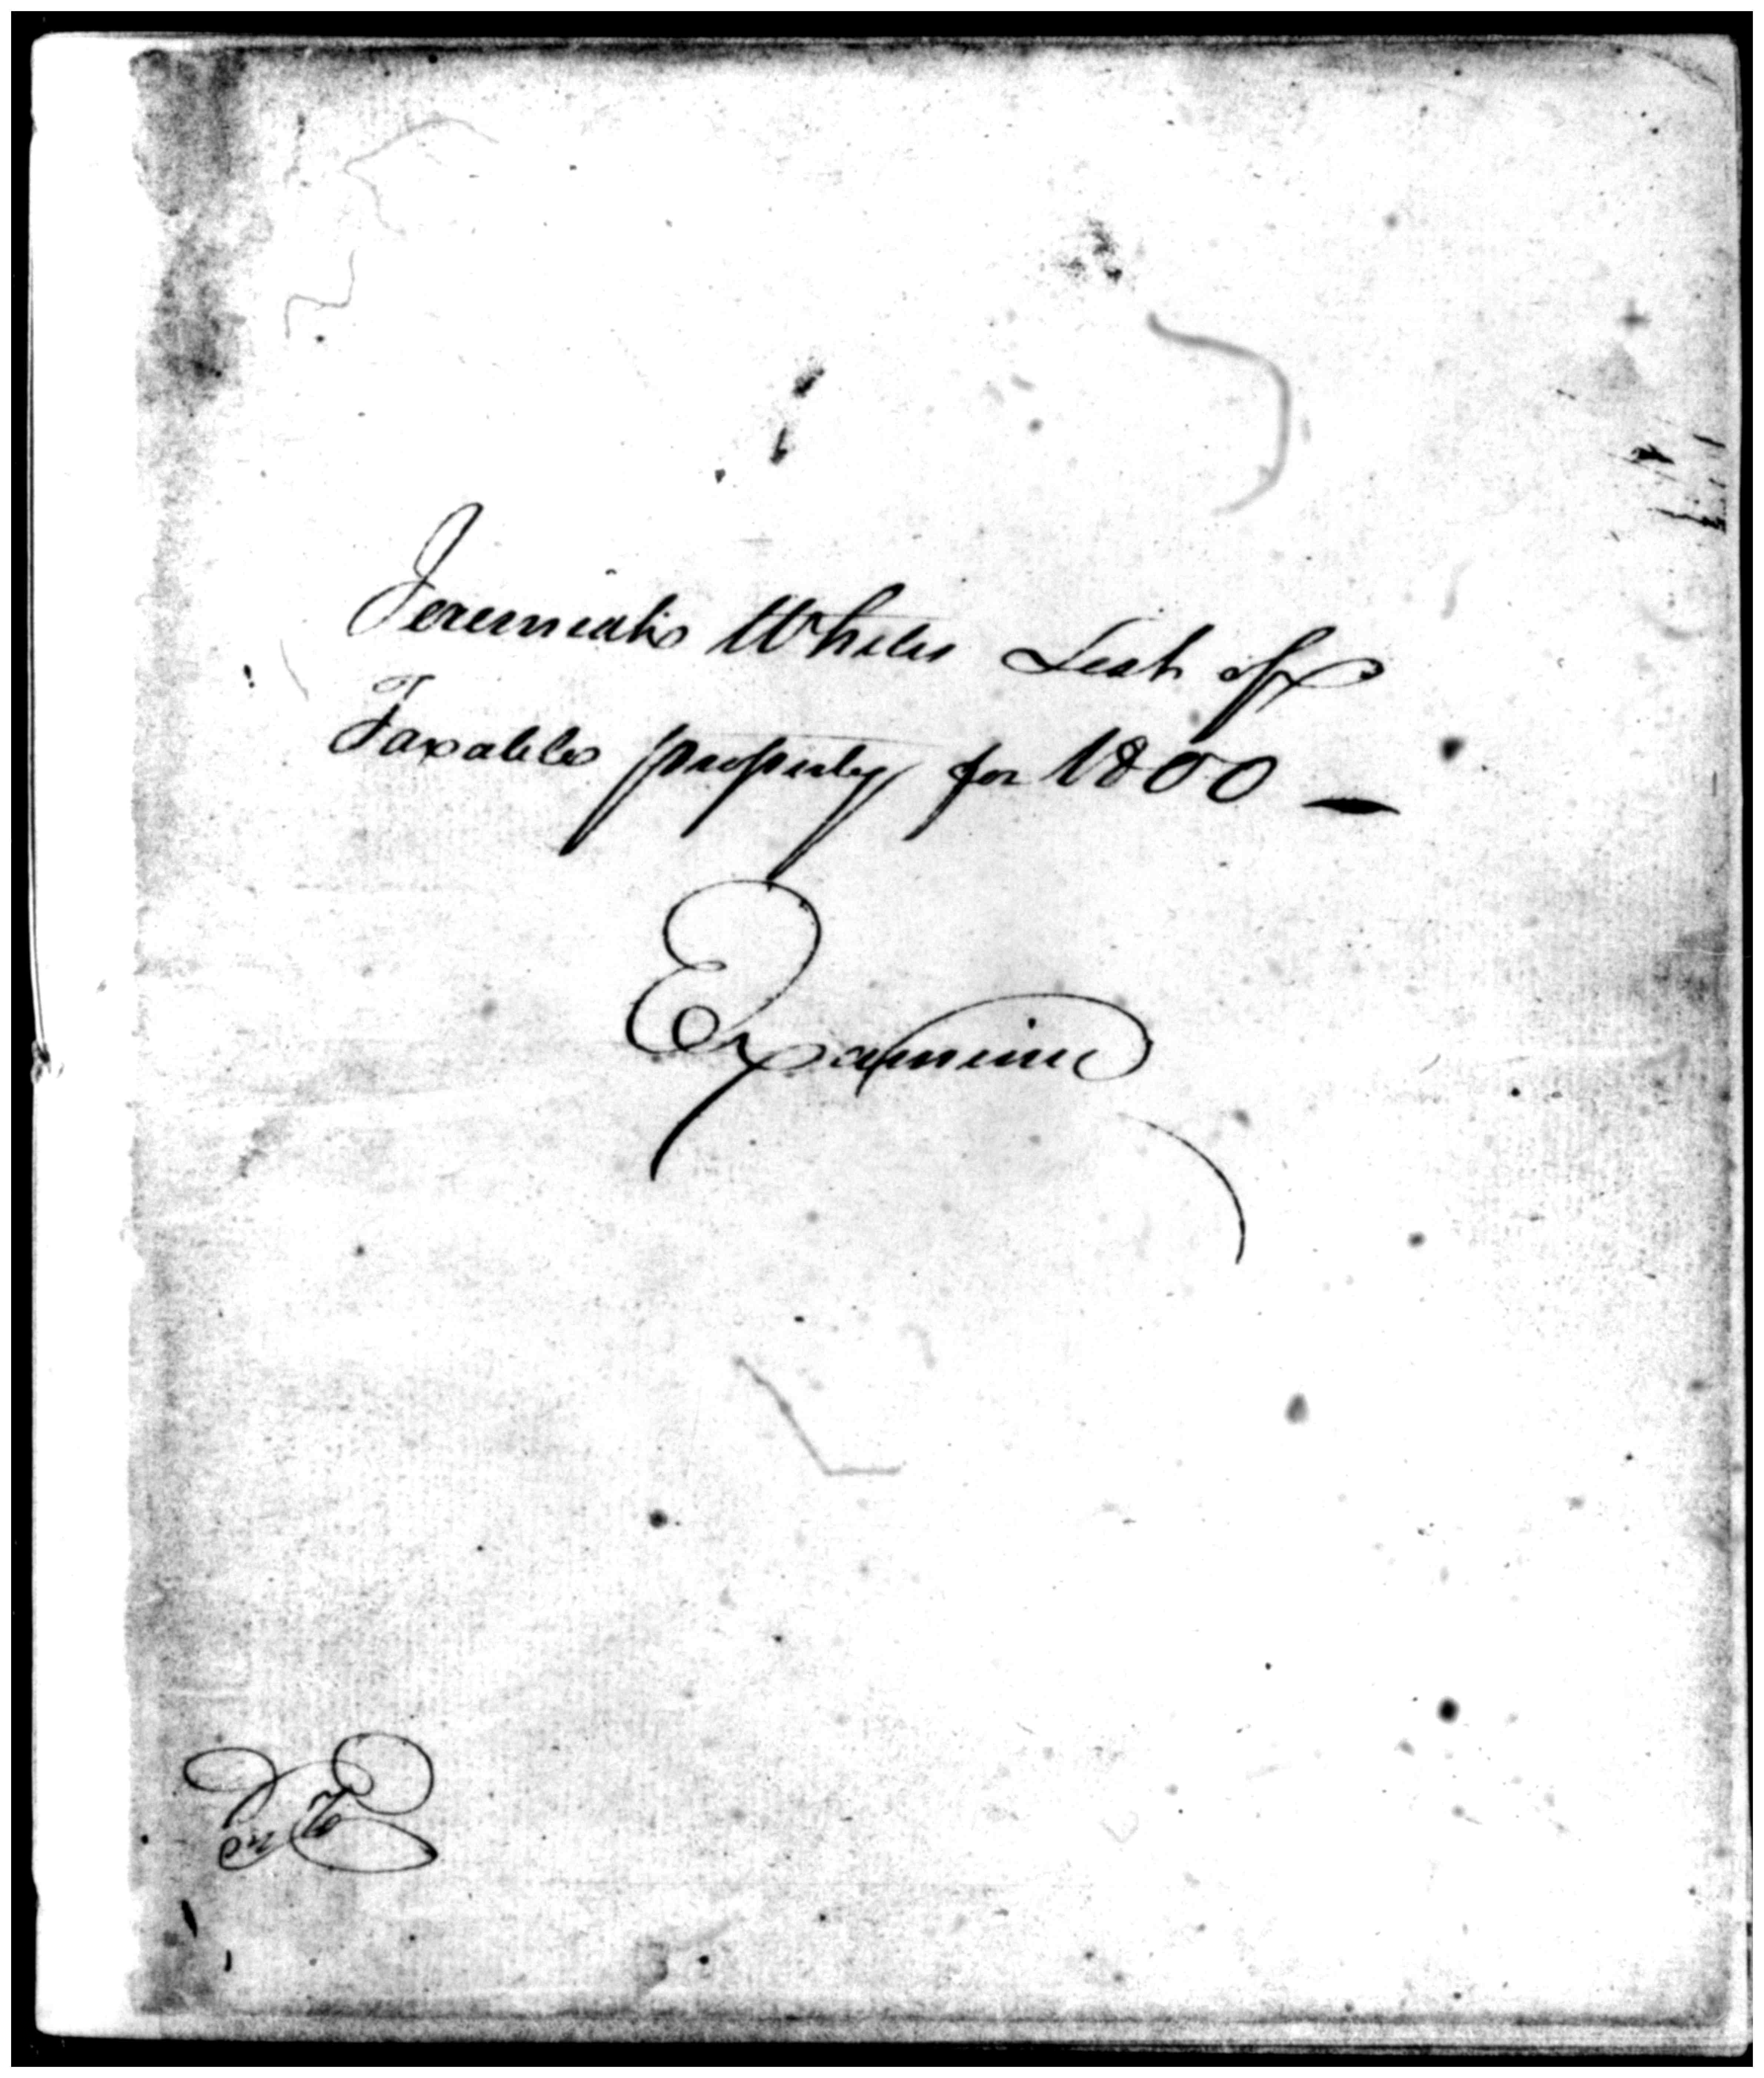 Jeremiah Whites List of
Taxable property for 1800 —
Examined